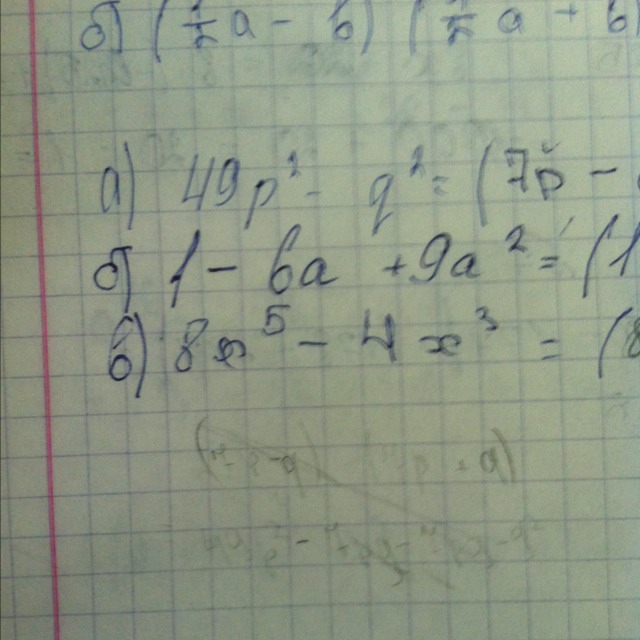 б) (½a - b) (½a + b
а) 49p² - q² = (7p -
б) 1 - 6a + 9a² = (1
в) 8x⁵ - 4x³ = (